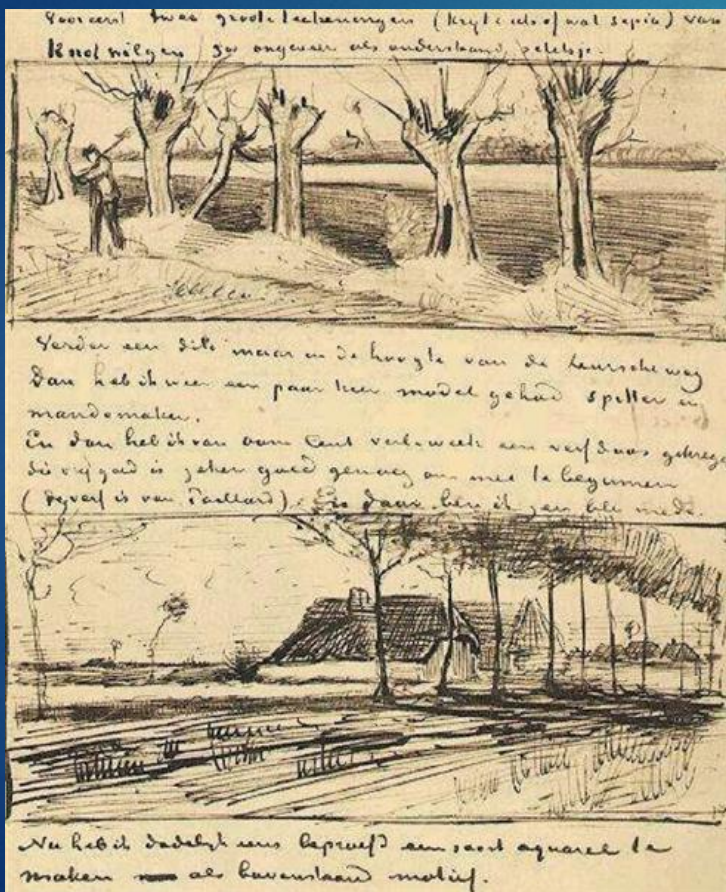 Vooreerst twee groote teekeningen (krijt & iets of wat sepia) van
Knotwilgen zoo ongeveer als onderstaand schetsje.
Verder een dito maar in de hoogte van de Leursche weg
Dan heb ik weer een paar keer model gehad spitter en
mandemaker.
En dan heb ik van oom Cent verl. week een verfdoos gekrege
die vrij goed is zeker goed genoeg om mee te beginnen
(de verf is van Paillard). En daar ben ik zeer blij mede.
Nu heb ik dadelijk eens beproefd een soort aquarel te
maken als bovenstaand motief.